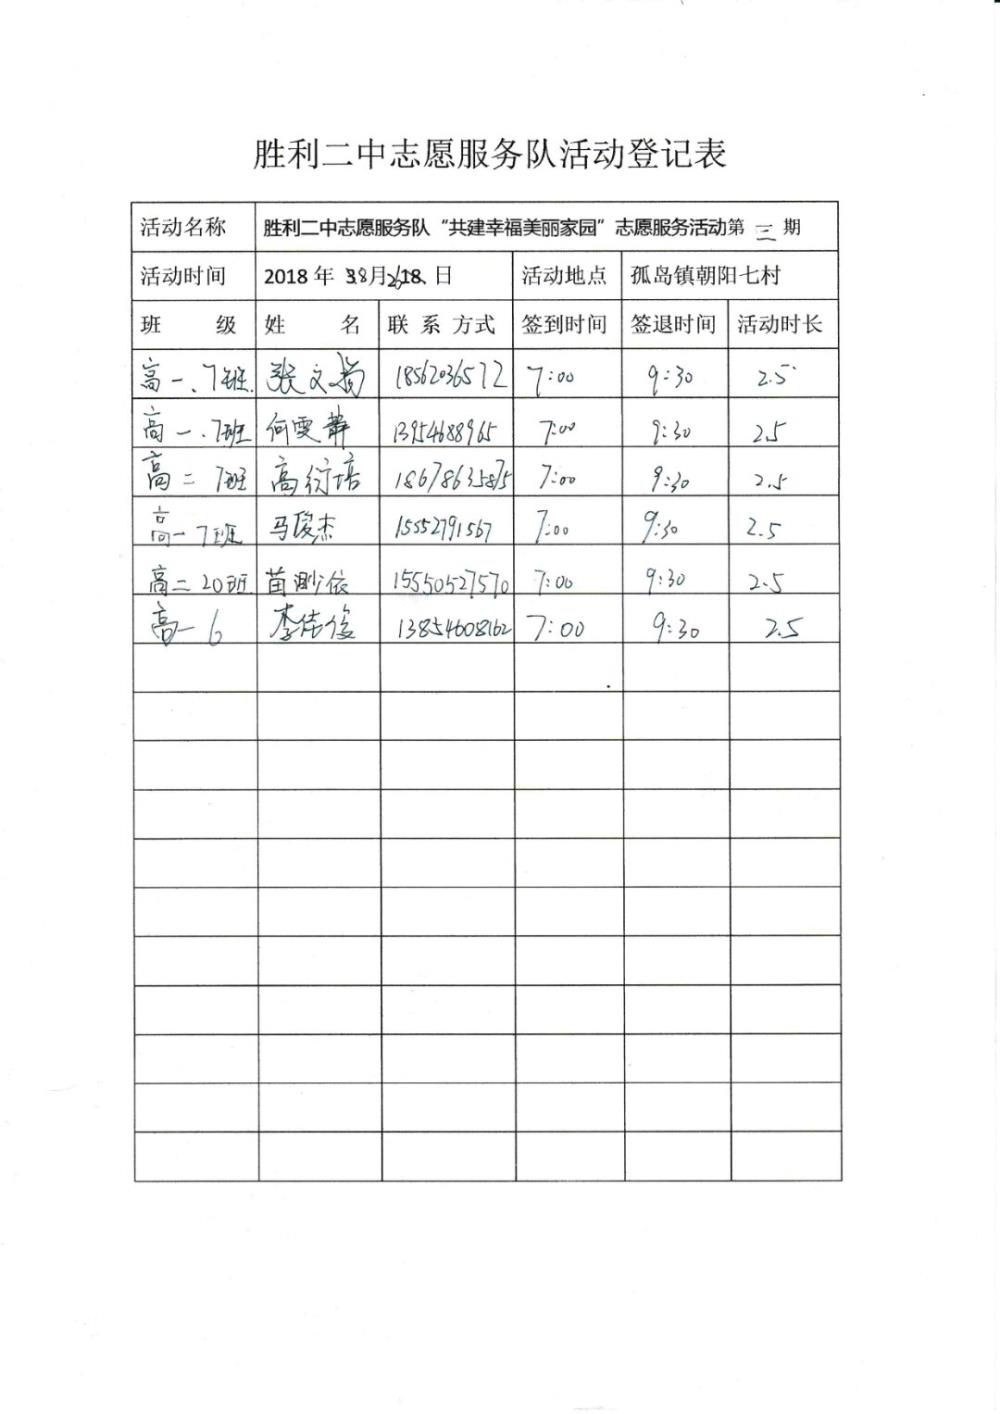 胜利二中志愿服务队活动登记表
活动名称 胜利二中志愿服务队“共建幸福美丽家园”志愿服务活动第 三 期
活动时间 2018 年 月 日 活动地点 孤岛镇朝阳七村
班 级 姓 名 联 系 方式 签到时间 签退时间 活动时长
高一、7班. 张文 18562036572 7:00 9:30 2.5
高一.7班 何雯静 13954688965 7:00 9:30 2.5
高二 7班 高衍培 18678635875 7:00 9:30 2.5
高一7班 马俊杰 15552791567 7:00 9:30 2.5
高二20班. 苗渺依 15550527570 7:00 9:30 2.5
高一6 李佶俊 13854608162 7:00 9:30 2.5